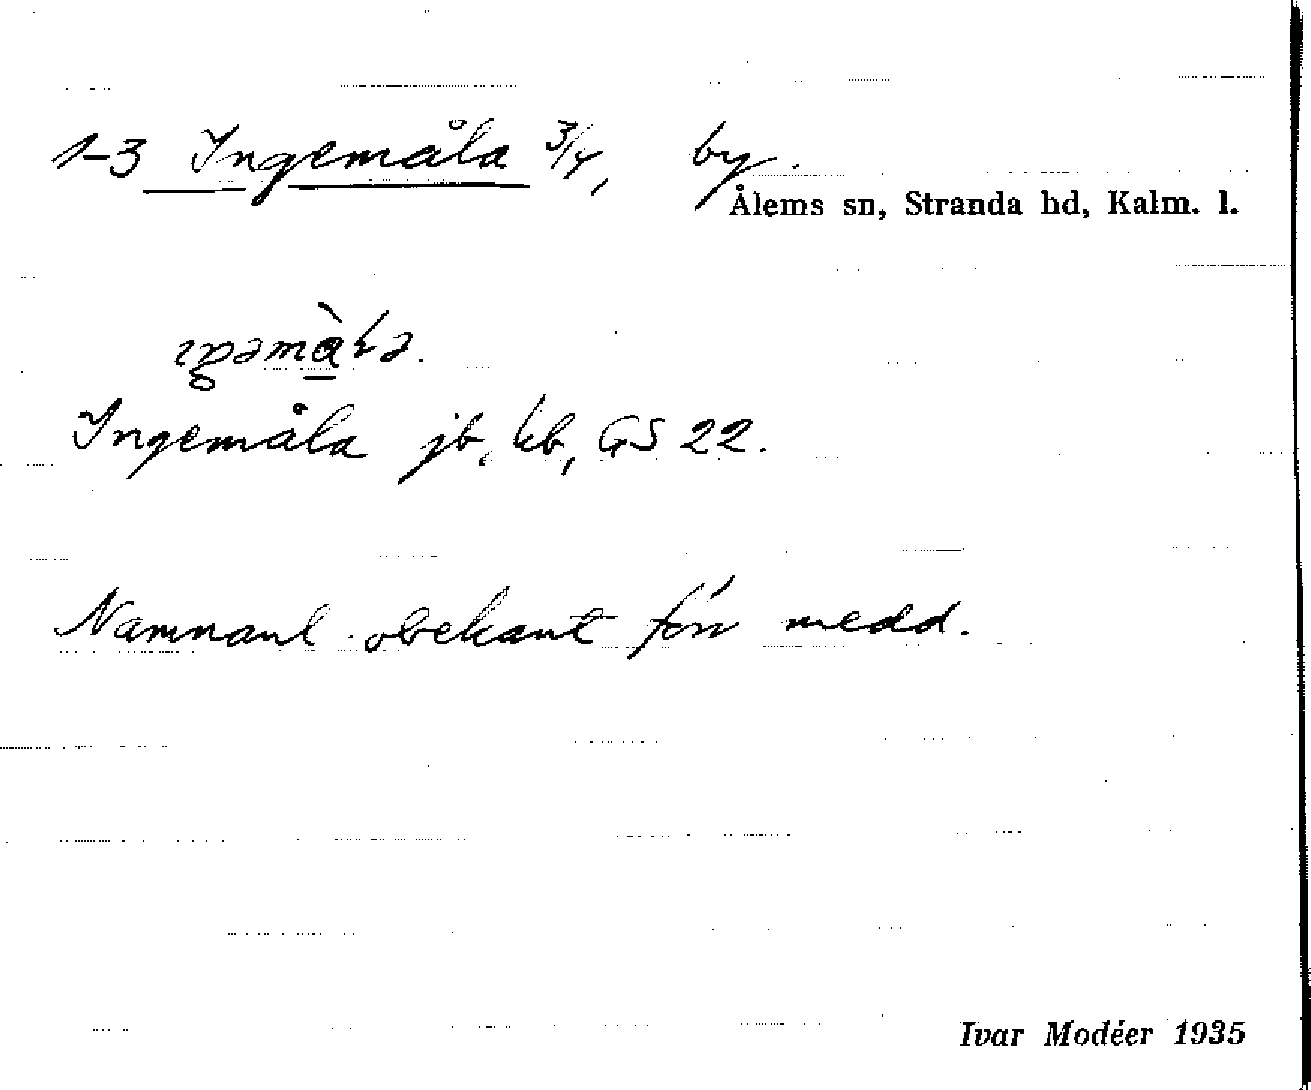 1-3 Ingemåla 3/4, by.
Ålems sn, Stranda hd, Kalm. l.
Ingemåla jb, kb, GS 22.
Namnanl. obekant för medd.
Ivar Modéer 1935